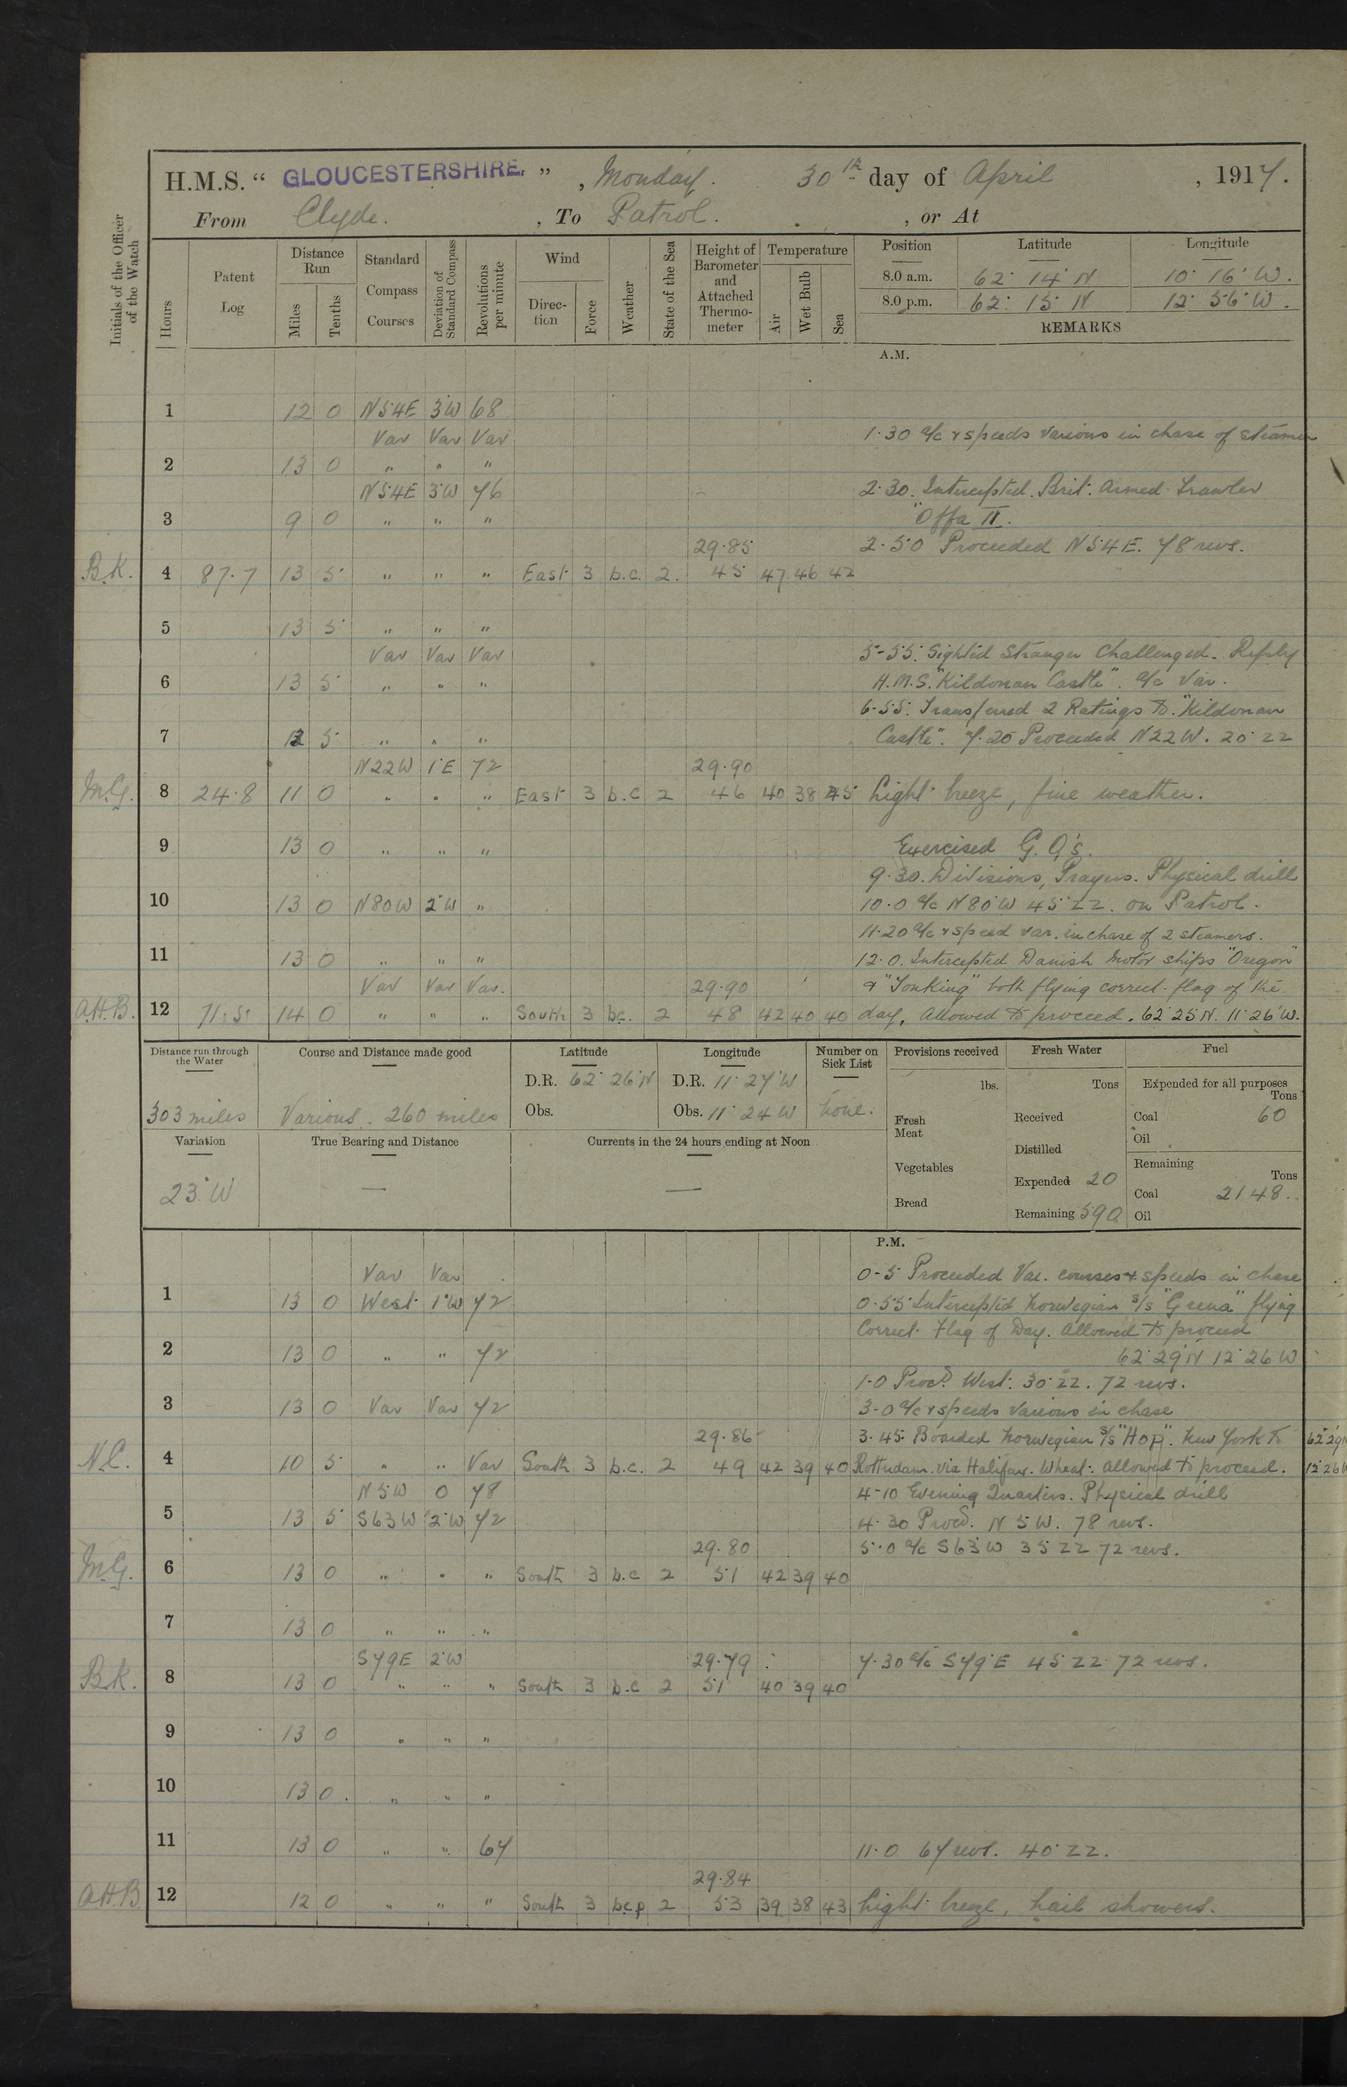 H.M.S. “ GLOUCESTERSHIRE. ” , Monday. 30th day of April , 1917.
From Clyde. , To Patrol. , or At
Initials of the Officer of the Watch
Hours
Patent Log
Distance Run
Miles
Tenths
Standard Compass Courses
Deviation of Standard Compass
Revolutions per minute
Wind
Direction
Force
Weather
State of the Sea
Height of Barometer and Attached Thermometer
Temperature
Air
Wet Bulb
Sea
Position Latitude Longitude
8.0 a.m. 62° 14' N 10° 16' W.
8.0 p.m. 62° 15' N 12° 56' W.
REMARKS
A.M.
1 12 0 N54E 3°W 68
Var Var Var 1.30 a/c & speeds various in chase of steamer
2 13 0 „ „ „
N54E 3°W 76 2.30. Intercepted. Brit. Armed Trawler
3 9 0 „ „ „ "Offa II.
29.85 2.50 Proceeded N54E. 78 revs.
B.K. 4 87.7 13 5 „ „ „ East 3 b.c. 2. 45 47 46 42
5 13 5 „ „ „
Var Var Var 5-55. Sighted Stranger Challenged. Reply
6 13 5 „ „ „ H.M.S. "Kildonan Castle". a/c Var.
6-55. Transferred 2 Ratings to "Kildonan
7 12 5 „ „ „ Castle". 7.20 Proceeded N22W. 20° ZZ
N22W 1°E 72 29.90
M.G. 8 24.8 11 0 „ „ „ East 3 b.c 2 46 40 38 45 Light breeze, fine weather.
9 13 0 „ „ „ Exercised G. Q's.
9.30. Divisions, Prayers. Physical drill
10 13 0 N80W 2°W „ 10.0 a/c N80°W 45° ZZ. on Patrol.
11.20 a/c & speed var. in chase of 2 steamers.
11 13 0 „ „ „ 12.0. Intercepted Danish Motor ships "Oregon"
Var Var Var. 29.90 & "Tonking" both flying correct flag of the
A.H.B. 12 71.5 14 0 „ „ „ South 3 bc. 2 48 42 40 40 day, Allowed to proceed. 62° 25'N. 11° 26'W.
Distance run through the Water
303 miles
Course and Distance made good
Various. 260 miles
Latitude
D.R. 62° 26'N
Obs.
Longitude
D.R. 11° 27'W
Obs. 11° 24 W
Number on Sick List
none.
Provisions received
lbs.
Fresh Meat
Vegetables
Bread
Fresh Water
Tons
Received
Distilled
Expended 20
Remaining 590
Fuel
Expended for all purposes
Tons
Coal 60
Oil
Remaining
Tons
Coal 2148..
Oil
Variation
23°W
True Bearing and Distance
—
Currents in the 24 hours ending at Noon
—
P.M.
Var Var 0-5 Proceeded Var. courses & speeds in chase
1 13 0 West 1°W 72 0.55 Intercepted Norwegian s/s flying
Correct Flag of Day. Allowed to proceed
2 13 0 „ „ 72 62° 29'N 12° 26 W
1.0 Procd. West. 30° ZZ. 72 revs.
3 13 0 Var Var 72 3-0 a/c & speeds various in chase
29.86 3.45. Boarded Norwegian s/s "Hop". New York to 62° 29N
N.C. 4 10 5 „ „ Var South 3 b.c. 2 49 42 39 40 Rotterdam. via Halifax. Wheat. Allowed to proceed. 12° 26W
N5W 0 78 4-10 Evening Quarters. Physical drill
5 13 5 S63W 2°W 72 4.30 Procd. N 5 W. 78 revs.
29.80 5.0 a/c S63°W 35 ZZ 72 revs.
M.G. 6 13 0 „ „ „ South 3 b.c 2 51 42 39 40
7 13 0 „ „ „
S79E 2°W 29.79 7.30 a/c S79°E 45° ZZ 72 revs.
B.K. 8 13 0 „ „ „ South 3 b.c 2 51 40 39 40
9 13 0 „ „ „
10 13 0 „ „ „
11 13 0 „ „ 67 11.0 67 revs. 40° ZZ.
29.84
A.H.B 12 12 0 „ „ „ South 3 bcp 2 53 39 38 43 Light breeze, hail showers.